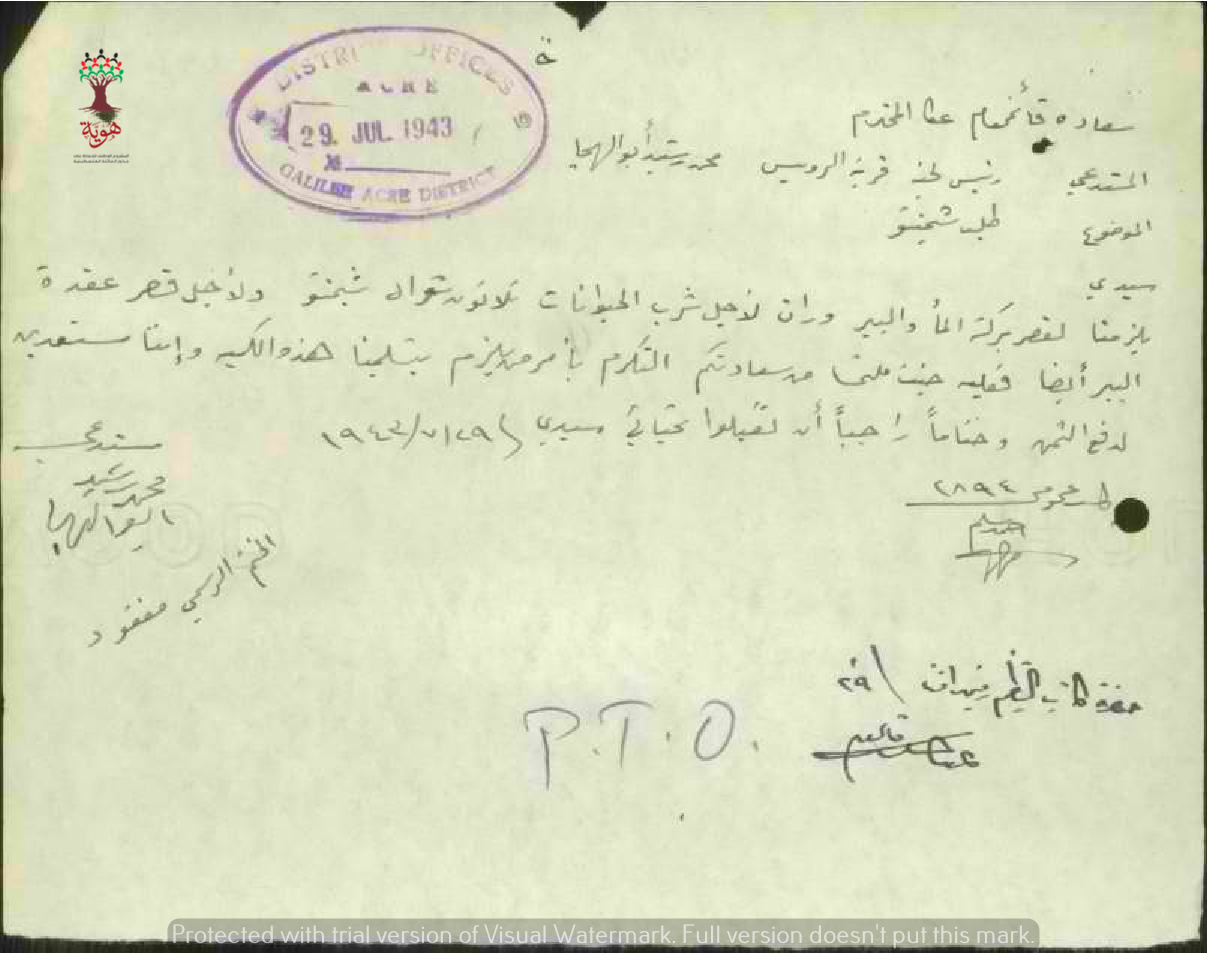 DISTRICT OFFICES
ACRE
29. JUL. 1943
No
GALILEE ACRE DISTRICT
هوية
سعادة قائمقام عكا المحترم
المستدعي رئيس لجنة قرية الرويس محمد رشيد أبو الهيجا
الموضوع طلب شمنتو
سيدي
يلزمنا لقصر بركة المأ والبير وران لأجل شرب الحيوانات ثلاثون شوال شمنتو ولأجل قصر عقدة
البير أيضا فعليه جئت ملتمسا من سعادتكم التكرم بأمر من يلزم بتسليمنا هذه الكمية وإننا مستعدين
لدفع الثمن وختاماً راجياً أن تقبلوا تحياتي سيدي ٢٩/٧/١٩٤٣
مستدعي
محمد رشيد
ابو الهيجا
الختم الرسمي مفقود
٢٨٩٤
حضرة كاتب
٢٩
قائمقام
عكا
P.T.O.
Protected with trial version of Visual Watermark. Full version doesn't put this mark.